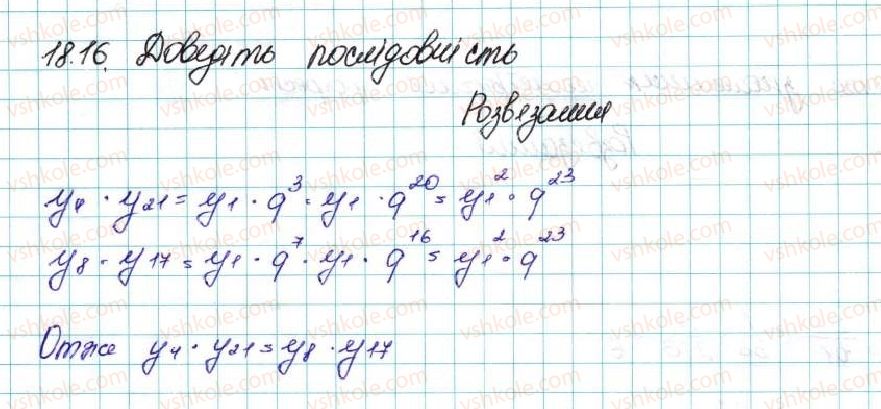 18.16. Доведіть послідовність
Розвезання
y₄ · y₂₁ = y₁ · q³ · y₁ · q²⁰ = y₁² · q²³
y₈ · y₁₇ = y₁ · q⁷ · y₁ · q¹⁶ = y₁² · q²³
Отже y₄ · y₂₁ = y₈ · y₁₇
vshkole.com